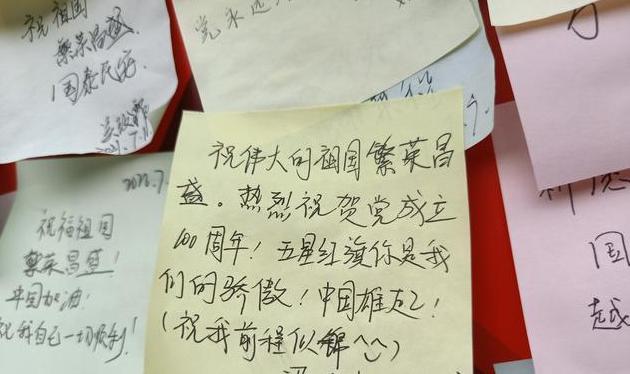 祝祖国
繁荣昌盛
国泰民安
党永远
祝伟大的祖国繁荣昌
盛。热烈祝贺党成立
100周年！五星红旗你是我
们的骄傲！中国雄起！
（祝我前程似锦^^）
祝福祖国
繁荣昌盛！
中国加油！
祝我自己一切顺利！
国
越